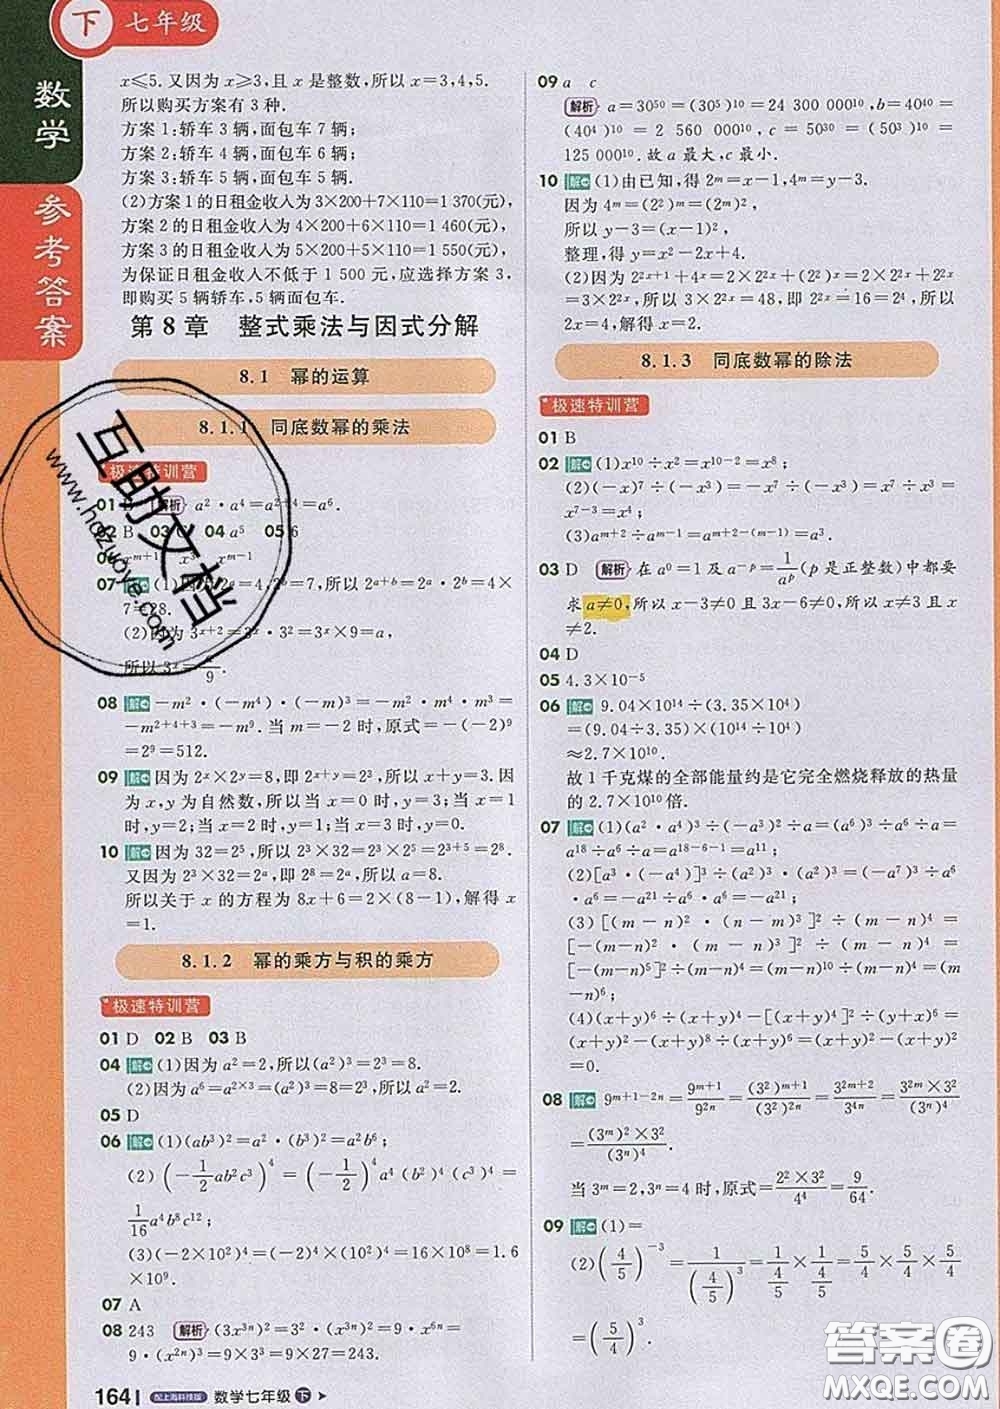 下 七年级
数学
参考答案
x≤5. 又因为 x≥3,且 x 是整数,所以 x=3,4,5.
所以购买方案有 3 种.
方案 1:轿车 3 辆,面包车 7 辆;
方案 2:轿车 4 辆,面包车 6 辆;
方案 3:轿车 5 辆,面包车 5 辆.
(2)方案 1 的日租金收入为 3×200+7×110=1 370(元),
方案 2 的日租金收入为 4×200+6×110=1 460(元),
方案 3 的日租金收入为 5×200+5×110=1 550(元),
为保证日租金收入不低于 1 500 元,应选择方案 3,
即购买 5 辆轿车,5 辆面包车.
第 8 章 整式乘法与因式分解
8.1 幂的运算
8.1.1 同底数幂的乘法
极速特训营
01 B 解析 a²·a⁴=a²⁺⁴=a⁶.
02 B 03 C 04 a⁵ 05 6
06 xᵐ⁺¹ x³ xᵐ⁻¹
07 解 (1)因为 2ᵃ=4,2ᵇ=7,所以 2ᵃ⁺ᵇ=2ᵃ·2ᵇ=4×
7=28.
(2)因为 3ˣ⁺²=3ˣ·3²=3ˣ×9=a,
所以 3ˣ=a/9.
08 解 -m²·(-m⁴)·(-m)³=-m²·m⁴·m³=
-m²⁺⁴⁺³=-m⁹. 当 m=-2 时,原式=-(-2)⁹
=2⁹=512.
09 解 因为 2ˣ×2ʸ=8,即 2ˣ⁺ʸ=2³,所以 x+y=3. 因
为 x,y 为自然数,所以当 x=0 时,y=3;当 x=1 时,
y=2;当 x=2 时,y=1;当 x=3 时,y=0.
10 解 因为 32=2⁵,所以 2³×32=2³×2⁵=2³⁺⁵=2⁸.
又因为 2³×32=2ᵃ,即 2⁸=2ᵃ,所以 a=8.
所以关于 x 的方程为 8x+6=2×(8-1),解得 x
=1.
8.1.2 幂的乘方与积的乘方
极速特训营
01 D 02 B 03 B
04 解 (1)因为 a²=2,所以(a²)³=2³=8.
(2)因为 a⁶=a²ˣ³=(a²)³=8=2³,所以 a²=2.
05 D
06 解 (1)(ab³)²=a²·(b³)²=a²b⁶;
(2)(-1/2ab²c³)⁴=(-1/2)⁴a⁴(b²)⁴(c³)⁴=
1/16a⁴b⁸c¹²;
(3)(-2×10²)³×(-2×10³)=16×10⁹=1.6
×10⁹.
07 A
08 243 解析 (3x³ⁿ)²=3²·(x³ⁿ)²=9·x⁶ⁿ=
9·(x²ⁿ)³=9×3³=9×27=243.
164 配上海科技版 数学七年级 下
09 a c
解析 a=30⁵⁰=(30⁵)¹⁰=24 300 000¹⁰,b=40⁴⁰=
(40⁴)¹⁰=2 560 000¹⁰,c=50³⁰=(50³)¹⁰=
125 000¹⁰. 故 a 最大,c 最小.
10 解 (1)由已知,得 2ᵐ=x-1,4ᵐ=y-3.
因为 4ᵐ=(2²)ᵐ=(2ᵐ)²,
所以 y-3=(x-1)²,
整理,得 y=x²-2x+4.
(2)因为 2²ˣ⁺¹+4ˣ=2×2²ˣ+(2²)ˣ=2×2²ˣ+2²ˣ=
3×2²ˣ=48,所以 3×2²ˣ=48,即 2²ˣ=16=2⁴,所以
2x=4,解得 x=2.
8.1.3 同底数幂的除法
极速特训营
01 B
02 解 (1)x¹⁰÷x²=x¹⁰⁻²=x⁸;
(2)(-x)⁷÷(-x³)=(-x⁷)÷(-x³)=x⁷÷x³=
x⁷⁻³=x⁴;
(3)aᵐ⁺²÷aᵐ⁻¹=aᵐ⁺²⁻⁽ᵐ⁻¹⁾=a³.
03 D 解析 在 a⁰=1 及 a⁻ᵖ=1/aᵖ(p 是正整数)中都要
求 a≠0,所以 x-3≠0 且 3x-6≠0,所以 x≠3 且 x
≠2.
04 D
05 4.3×10⁻⁵
06 解 9.04×10¹⁴÷(3.35×10⁴)
=(9.04÷3.35)×(10¹⁴÷10⁴)
≈2.7×10¹⁰.
故 1 千克煤的全部能量约是它完全燃烧释放的热量
的 2.7×10¹⁰倍.
07 解 (1)(a²·a⁴)³÷(-a³)²÷a=(a⁶)³÷a⁶÷a=
a¹⁸÷a⁶÷a=a¹⁸⁻⁶⁻¹=a¹¹;
(2)[a³·(-a)⁴]³÷(a²)³·(-a²)³=(a⁷)³÷a⁶
·a⁶=-a²¹÷a⁶·a⁶=-a²¹;
(3)[(m-n)²·(n-m)³]²÷(m-n)⁴=
[-(m-n)²·(m-n)³]²÷(m-n)⁴=
[-(m-n)⁵]²÷(m-n)⁴=(m-n)¹⁰÷(m
-n)⁴=(m-n)⁶;
(4)(x+y)⁶÷(x+y)⁴-[(x+y)⁴]²÷(x+y)⁶=
(x+y)²-(x+y)⁸÷(x+y)⁶=(x+y)²-(x+y)²
=0.
08 解 9ᵐ⁺¹⁻²ⁿ=9ᵐ⁺¹/9²ⁿ=(3²)ᵐ⁺¹/(3²)²ⁿ=3²ᵐ⁺²/3⁴ⁿ=3²ᵐ×3²/(3ⁿ)⁴
=(3ᵐ)²×3²/(3ⁿ)⁴.
当 3ᵐ=2,3ⁿ=4 时,原式=2²×3²/4⁴=9/64.
09 解 (1)=
(2)(4/5)⁻³=1/(4/5)³=1/(4/5)×1/(4/5)×1/(4/5)=5/4×5/4×5/4
=(5/4)³.
互助文档
www.hdzuoye.com
答案圈
MXQE.COM